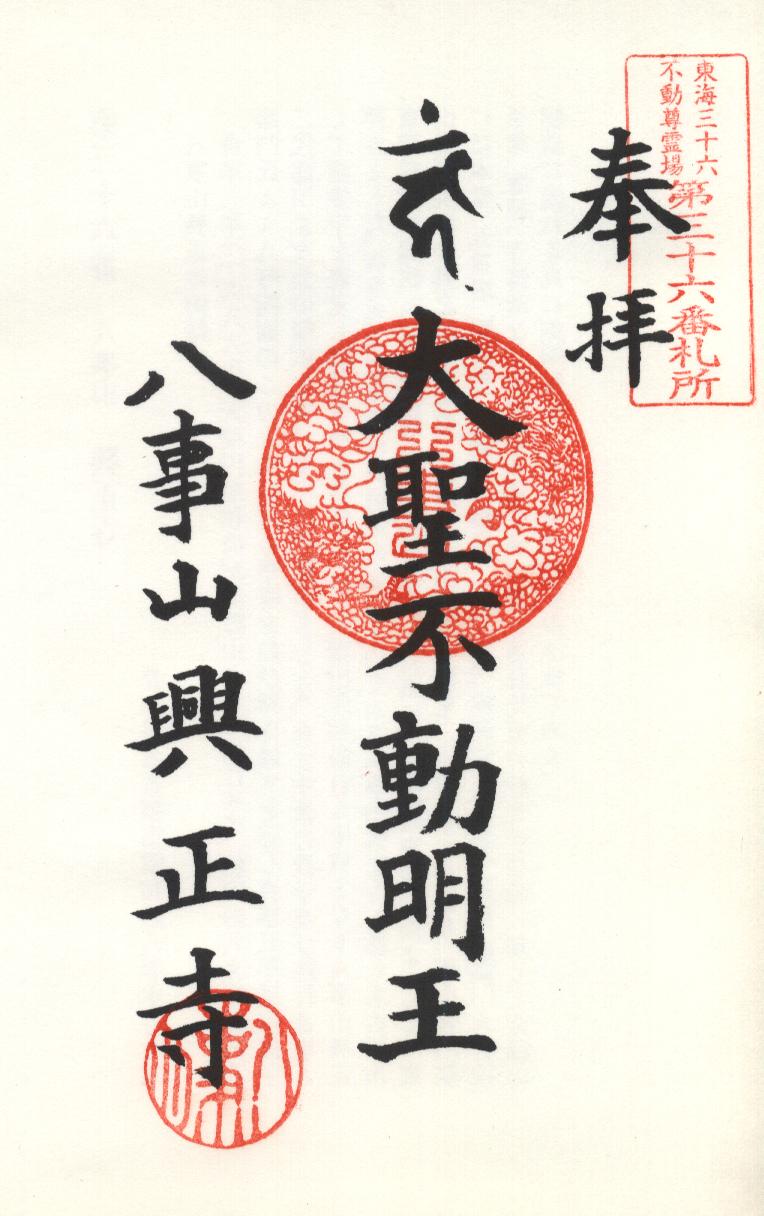 東海三十六
不動尊霊場
第三十六番札所
奉拝
大聖不動明王
八事山興正寺